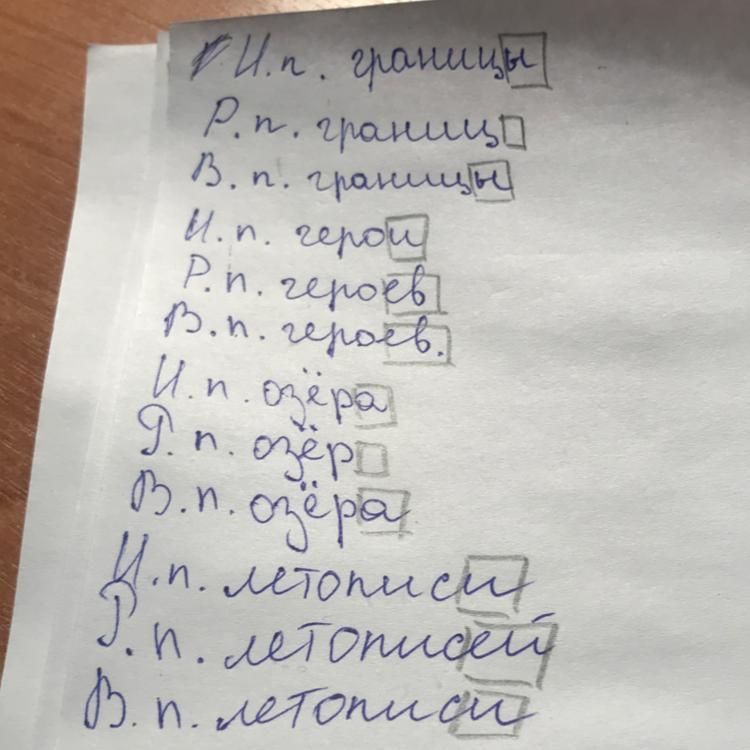 И.п. границы
Р.п. границ
В.п. границы
И.п. герои
Р.п. героев
В.п. героев.
И.п. озёра
Р.п. озёр
В.п. озёра
И.п. летописи
Р.п. летописей
В.п. летописи